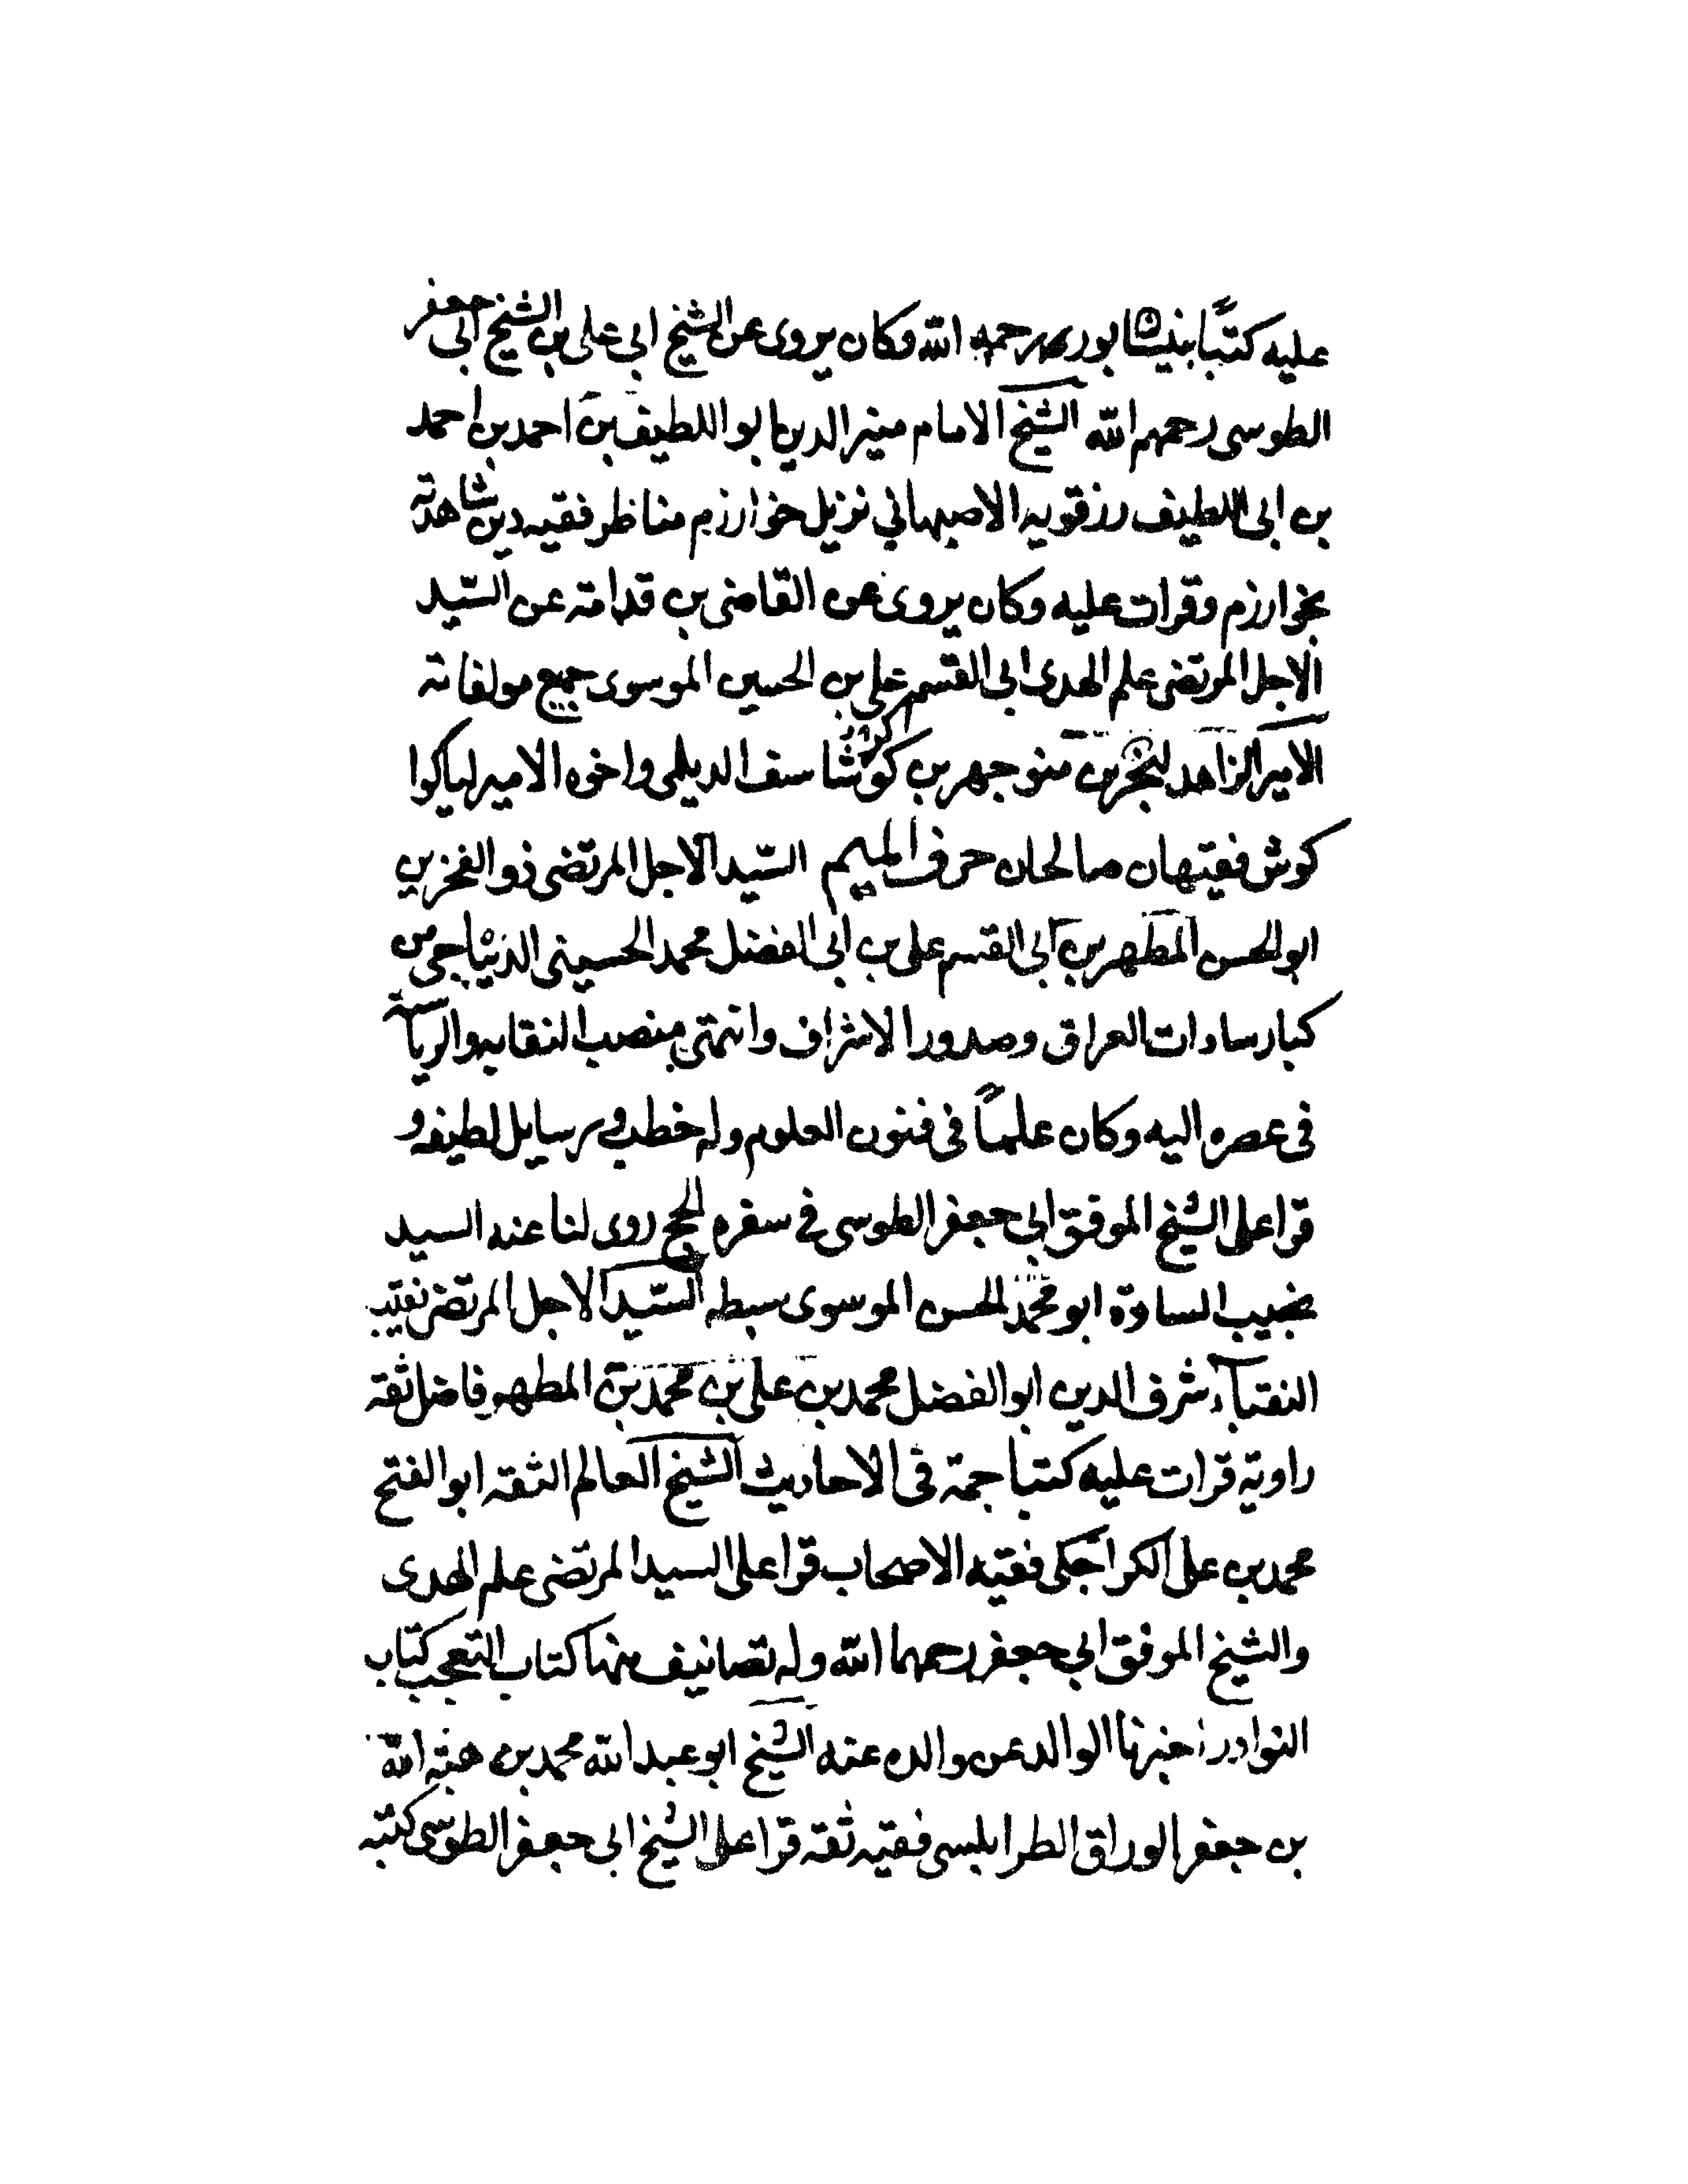 عليه كتبًا بنيشابور رحمهم الله وكان يروى عن الشيخ ابى على بن الشيخ ابى جعفر
الطوسى رحمهم الله الشيخ الامام منير الدين ابو اللطيف بن احمد بن احمد
بن ابى اللطيف رزقويه الاصبهانى نزيل خوارزم مناظر فقيه دين شاهدته
بخوارزم وقرات عليه وكان يروى عن القاضى بن قدامة عن السّيد
الاجل المرتضى علم الهدى ابى القسم على بن الحسين الموسوى جميع مولفاته
الامير الزاهد بن منوجهر بن كرشاسف الديلمى واخوه الامير لياكوا
كوش فقيهان صالحان حرف الميم السّيد الاجل المرتضى ذو الفخرين
ابو الحسن المطهر بن ابى القسم على بن ابى الفضل محمد الحسينى الديباجى من
كبار سادات العراق وصدور الاشراف وانتمتى منصب النقابه والرياسة
فى عصره اليه وكان علمًا فى فنون العلوم وله خطب ورسايل لطيفه و
قرا على الشيخ الموفق ابى جعفر الطوسى فى سفره الحج روى لنا عنه السيد
نجيب السادة ابو محمد الحسن الموسوى سبطه السّيد الاجل المرتضى نقيب
النقباء شرف الدين ابو الفضل محمد بن على بن محمد بن المطهر فاضل ثقة
راوية قرات عليه كتبا جمة فى الاحاديث الشيخ العالم الثقه ابو الفتح
محمد بن على الكراجكى فقيه الاصحاب قرا على السيد المرتضى علم الهدى
والشيخ الموفق ابى جعفر رحمهما الله وله تصانيف منها كتاب التعجب كتاب
النوادر اخبرنا الوالد عن والده عنه الشيخ ابو عبد الله محمد بن هبة الله
بن جعفر الوراق الطرابلسى فقيه ثقه قرا على الشيخ ابى جعفر الطوسى كتبه